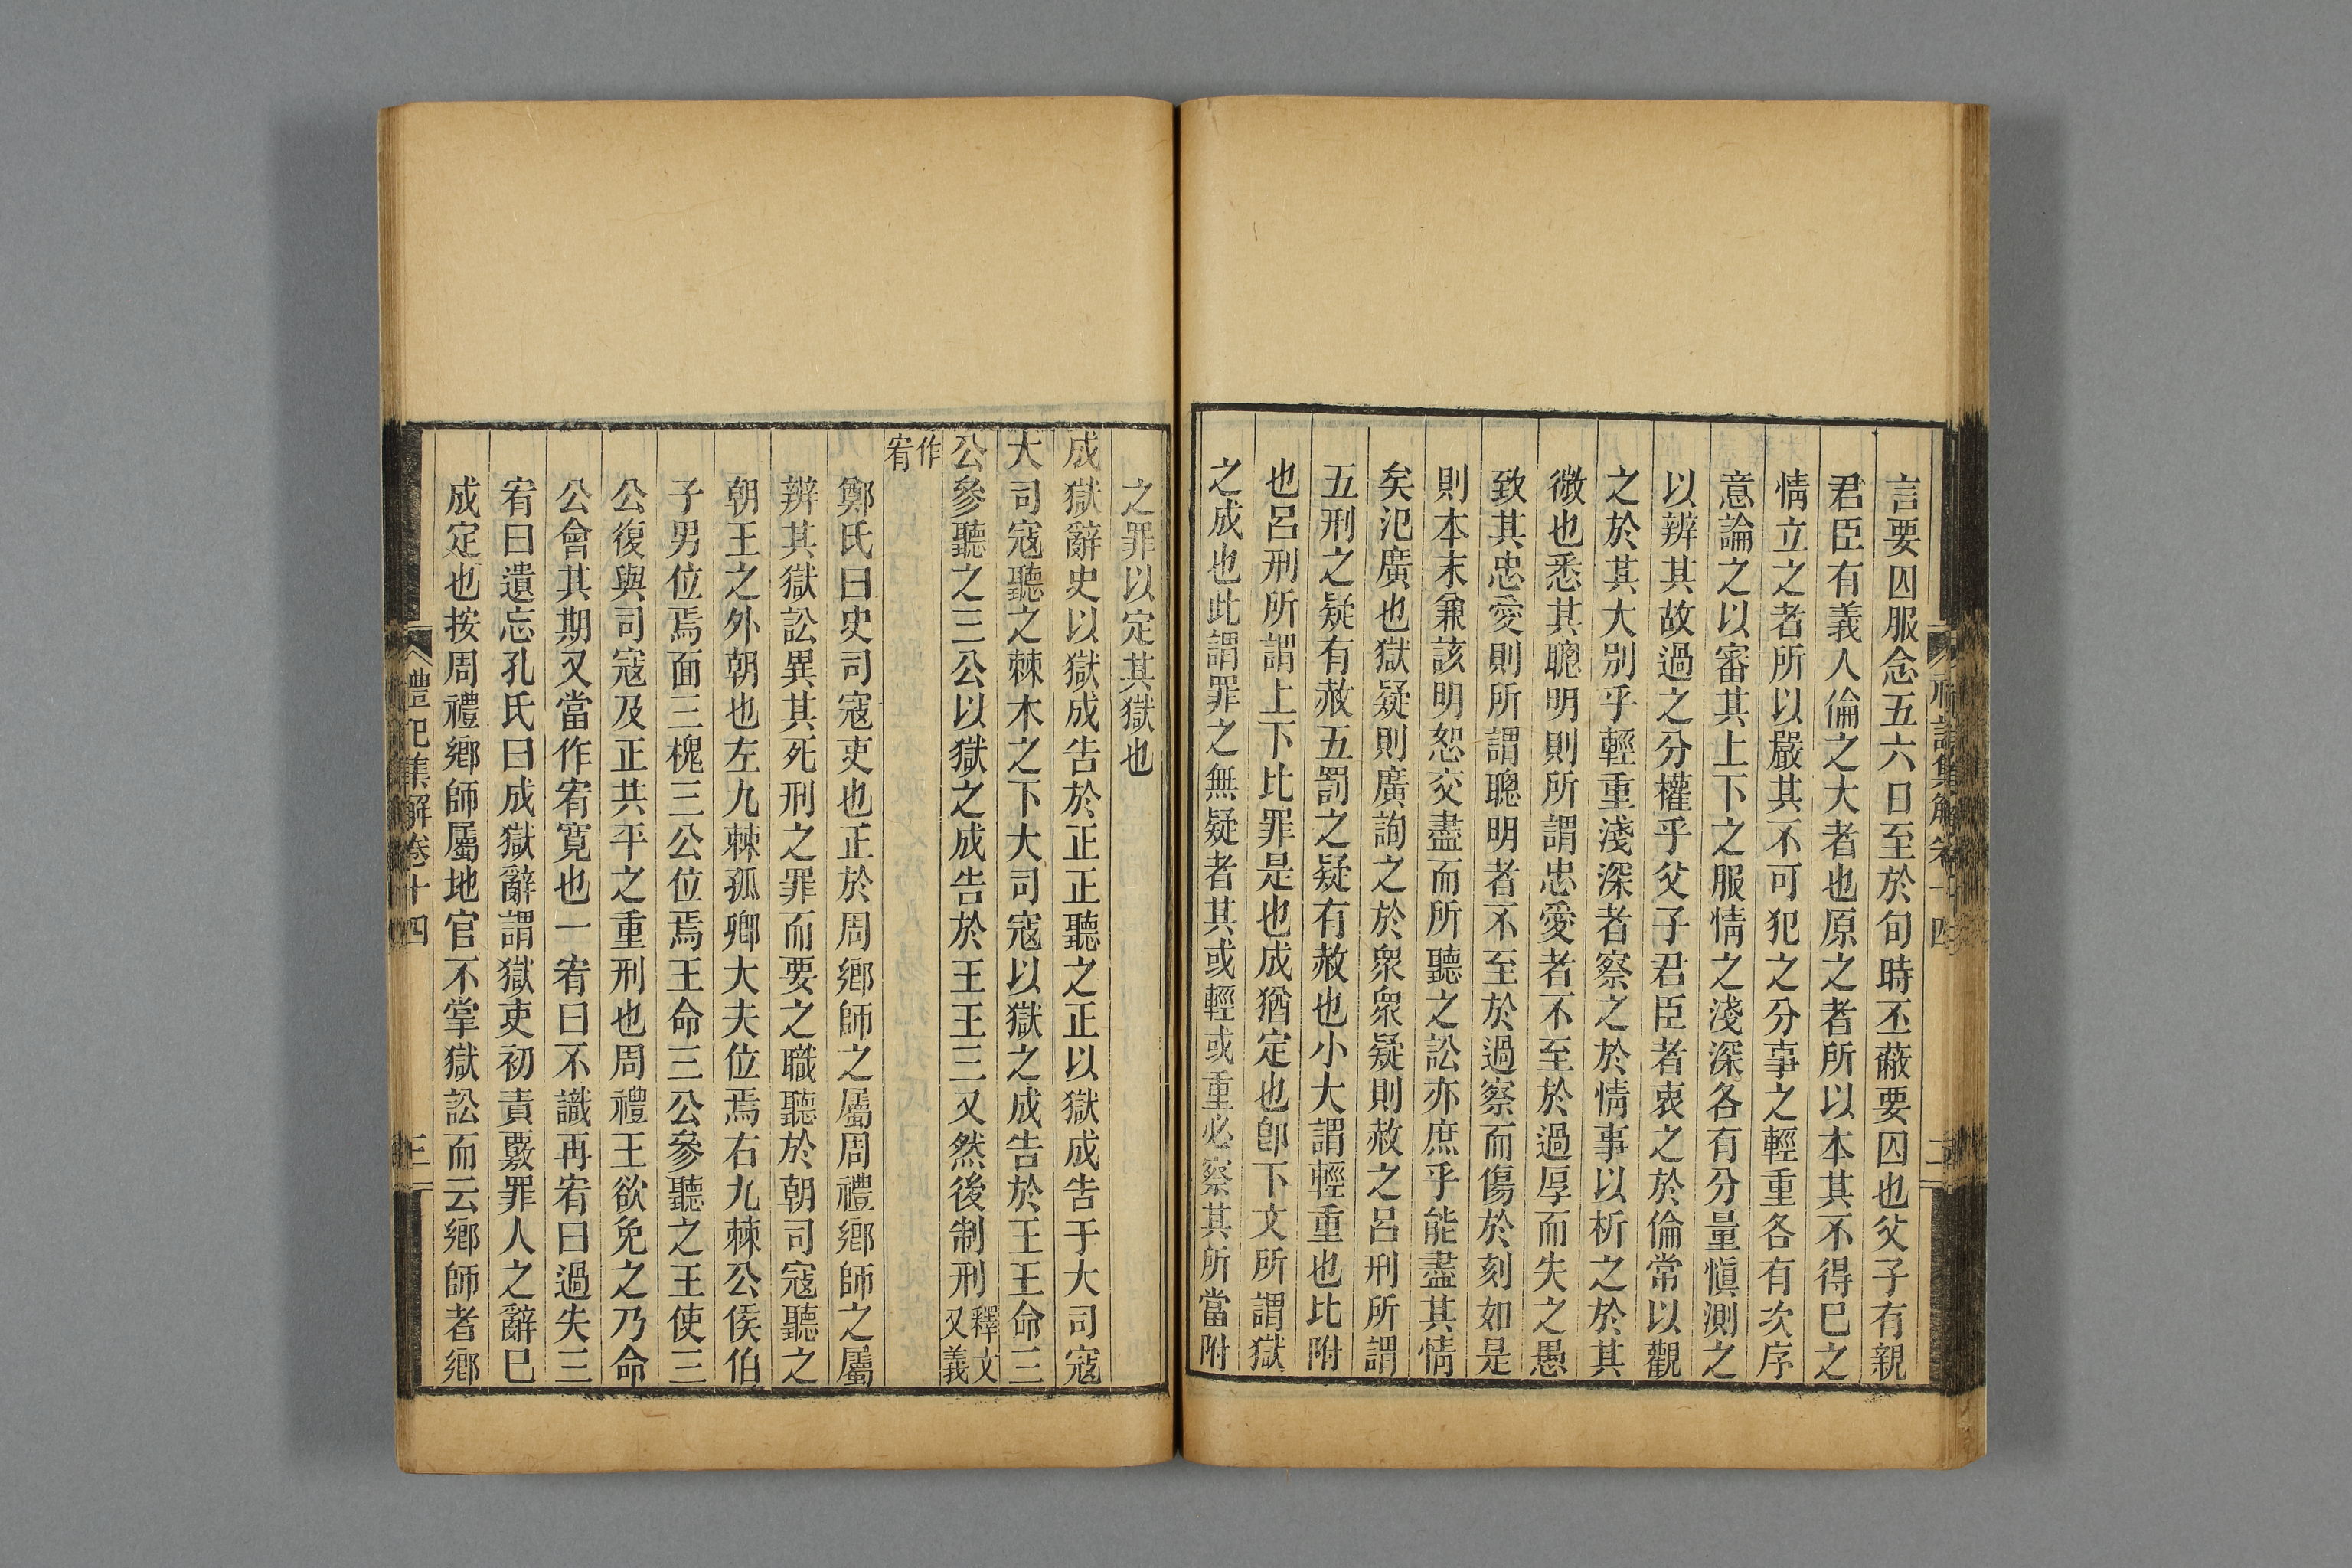 言要囚服念五六日至於旬時丕蔽要囚也父子有親
君臣有義人倫之大者也原之者所以本其不得巳之
情立之者所以嚴其不可犯之分事之輕重各有次序
意論之以審其上下之服情之淺深各有分量愼測之
以辨其故過之分權乎父子君臣者衷之於倫常以觀
之於其大別乎輕重淺深者察之於情事以析之於其
微也悉其聰明則所謂忠愛者不至於過厚而失之愚
致其忠愛則所謂聰明者不至於過察而傷於刻如是
則本末兼該明恕交盡而所聽之訟亦庶乎能盡其情
矣氾廣也獄疑則廣詢之於衆衆疑則赦之呂刑所謂
五刑之疑有赦五罰之疑有赦也小大謂輕重也比附
也呂刑所謂上下比罪是也成猶定也卽下文所謂獄
之成也此謂罪之無疑者其或輕或重必察其所當附
之罪以定其獄也
成獄辭史以獄成告於正正聽之正以獄成告于大司寇
大司寇聽之棘木之下大司寇以獄之成告於王王命三
公參聽之三公以獄之成告於王王三又然後制刑釋文又義
作宥
鄭氏曰史司寇吏也正於周鄉師之屬周禮鄉師之屬
辨其獄訟異其死刑之罪而要之職聽於朝司寇聽之
朝王之外朝也左九棘孤卿大夫位焉右九棘公侯伯
子男位焉面三槐三公位焉王命三公參聽之王使三
公復與司寇及正共平之重刑也周禮王欲免之乃命
公會其期又當作宥寬也一宥曰不識再宥曰過失三
宥曰遺忘孔氏曰成獄辭謂獄吏初責覈罪人之辭巳
成定也按周禮鄉師屬地官不掌獄訟而云鄉師者鄉
禮記集解卷十四
三